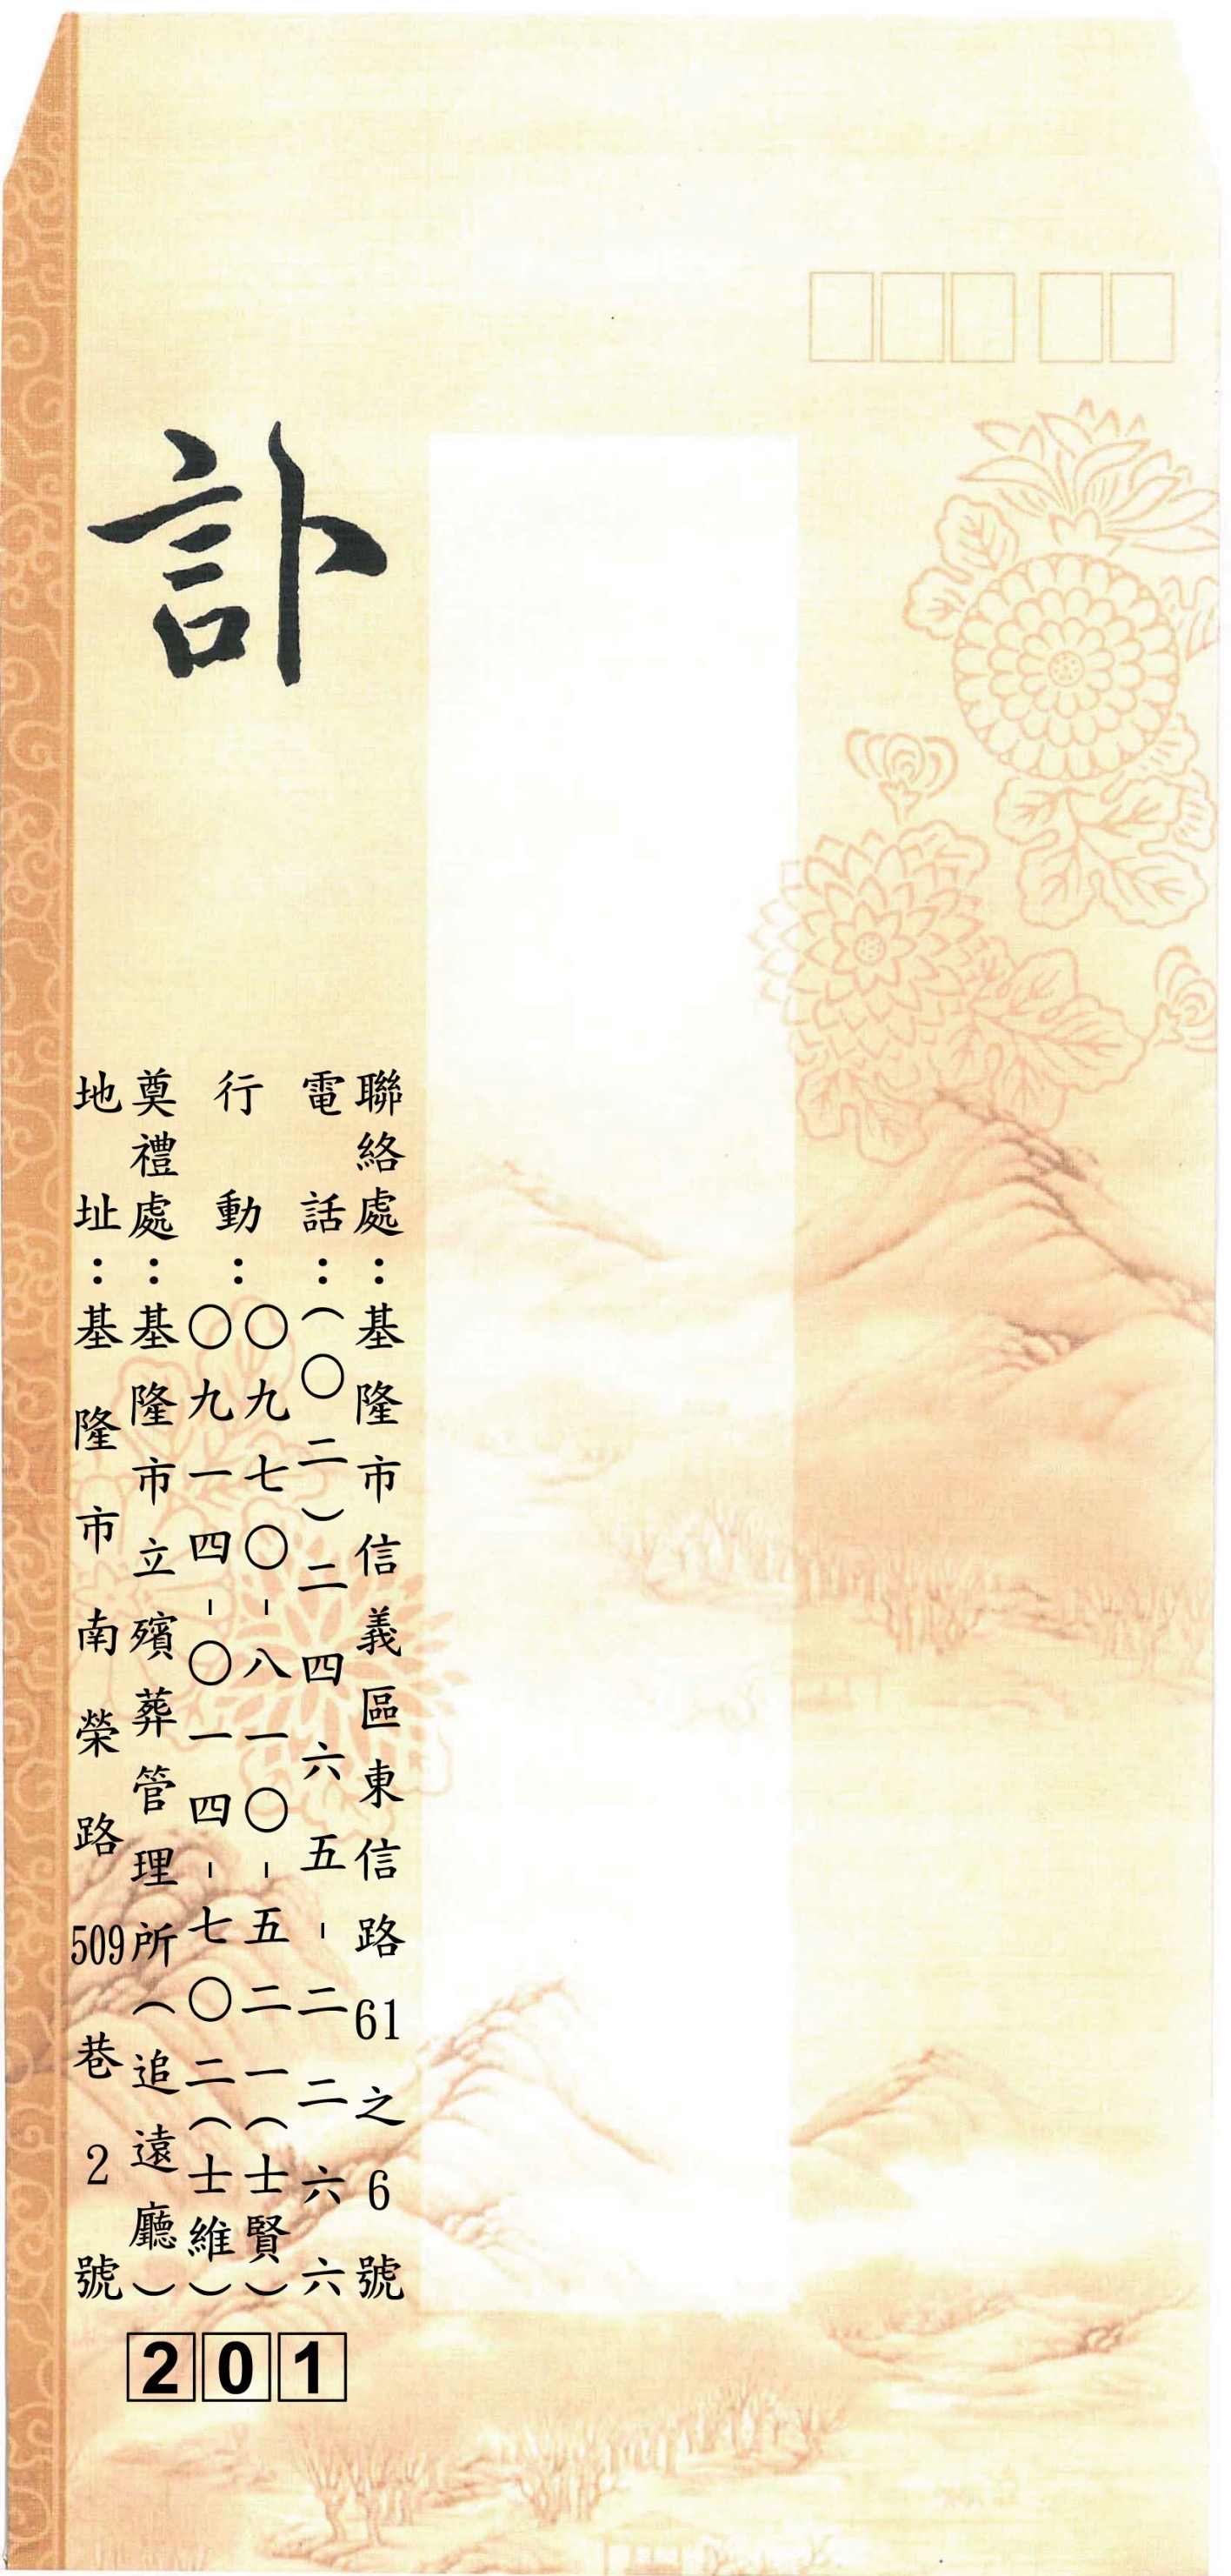 訃
聯絡處：基隆市信義區東信路61之6號
電話：（〇二）二四六五-二二六六
行動：〇九七〇-八一〇-五二一（士賢）
〇九一四-〇一四-七〇二（士維）
奠禮處：基隆市立殯葬管理所（追遠廳）
地址：基隆市南榮路509巷2號
201